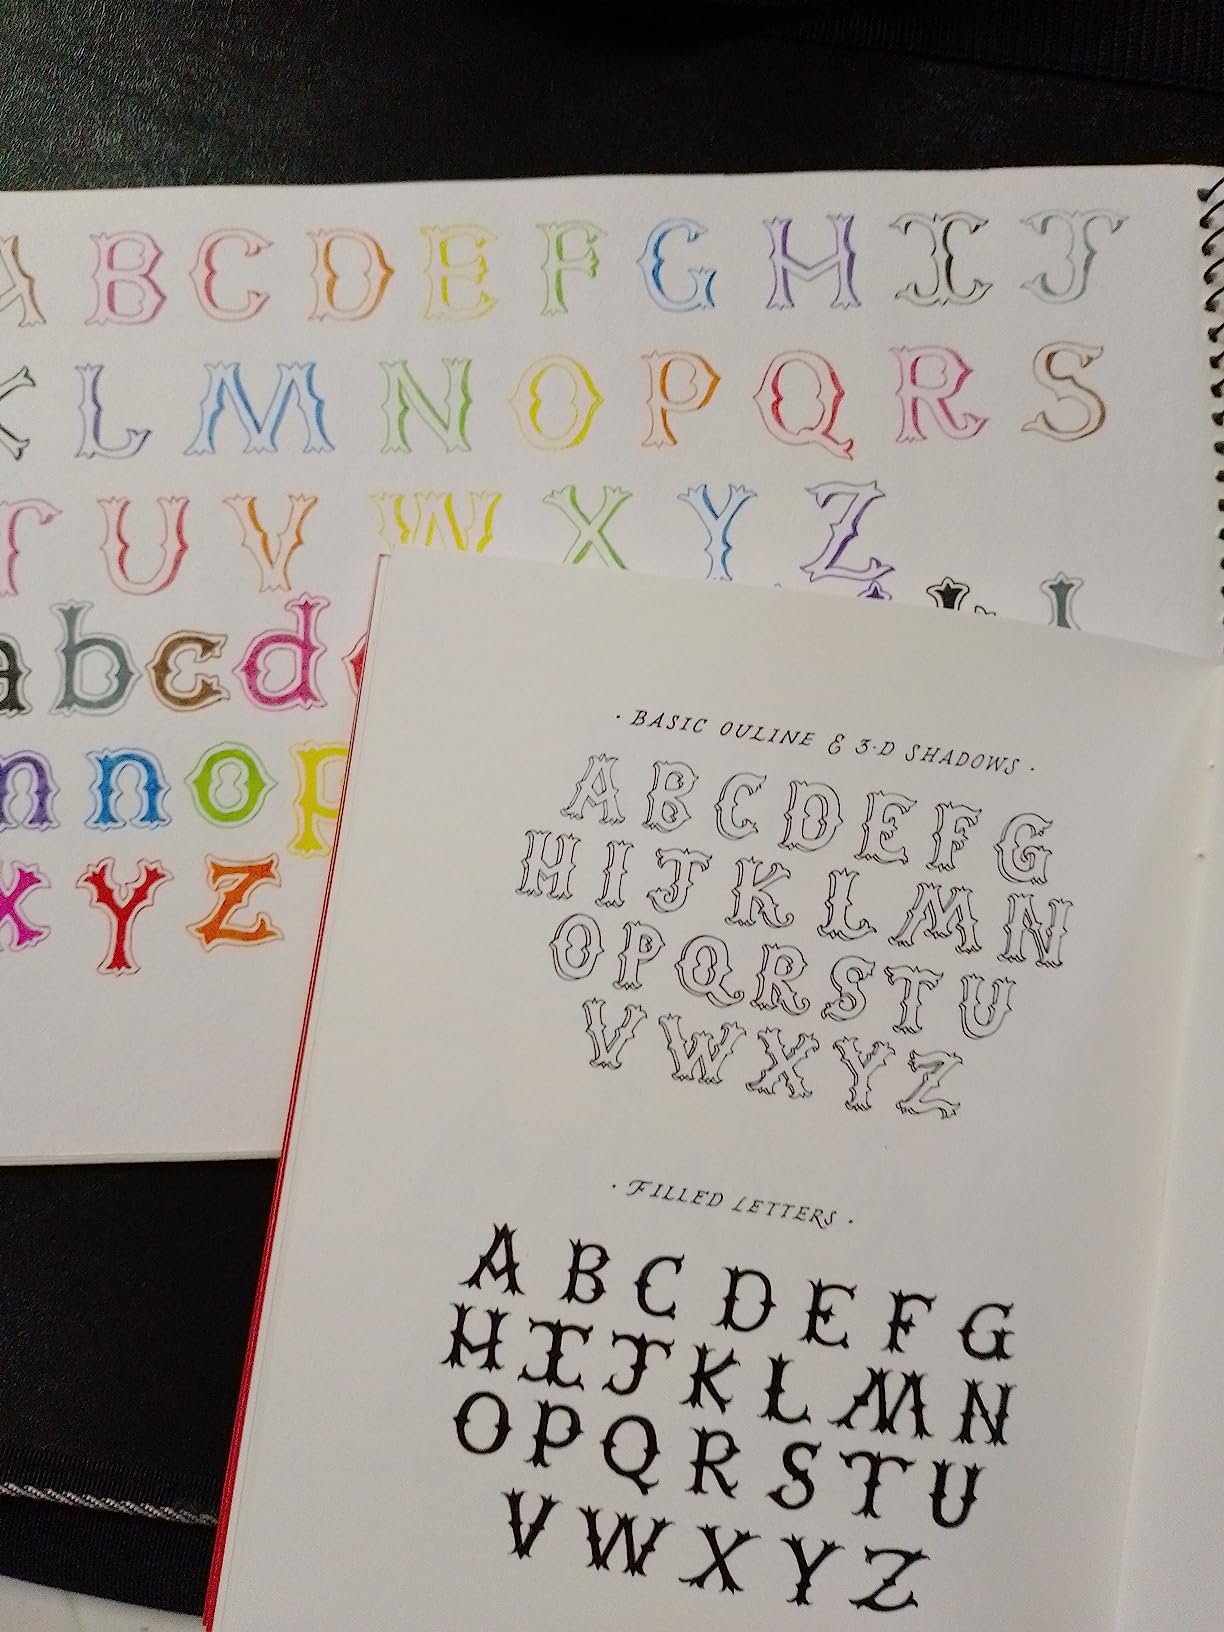 A B C D E F G H I J
K L M N O P Q R S
T U V W X Y Z
a b c d
n o p
x Y z
· BASIC OULINE & 3-D SHADOWS ·
A B C D E F G
H I J K L M N
O P Q R S T U
V W X Y Z
· FILLED LETTERS ·
A B C D E F G
H I J K L M N
O P Q R S T U
V W X Y Z